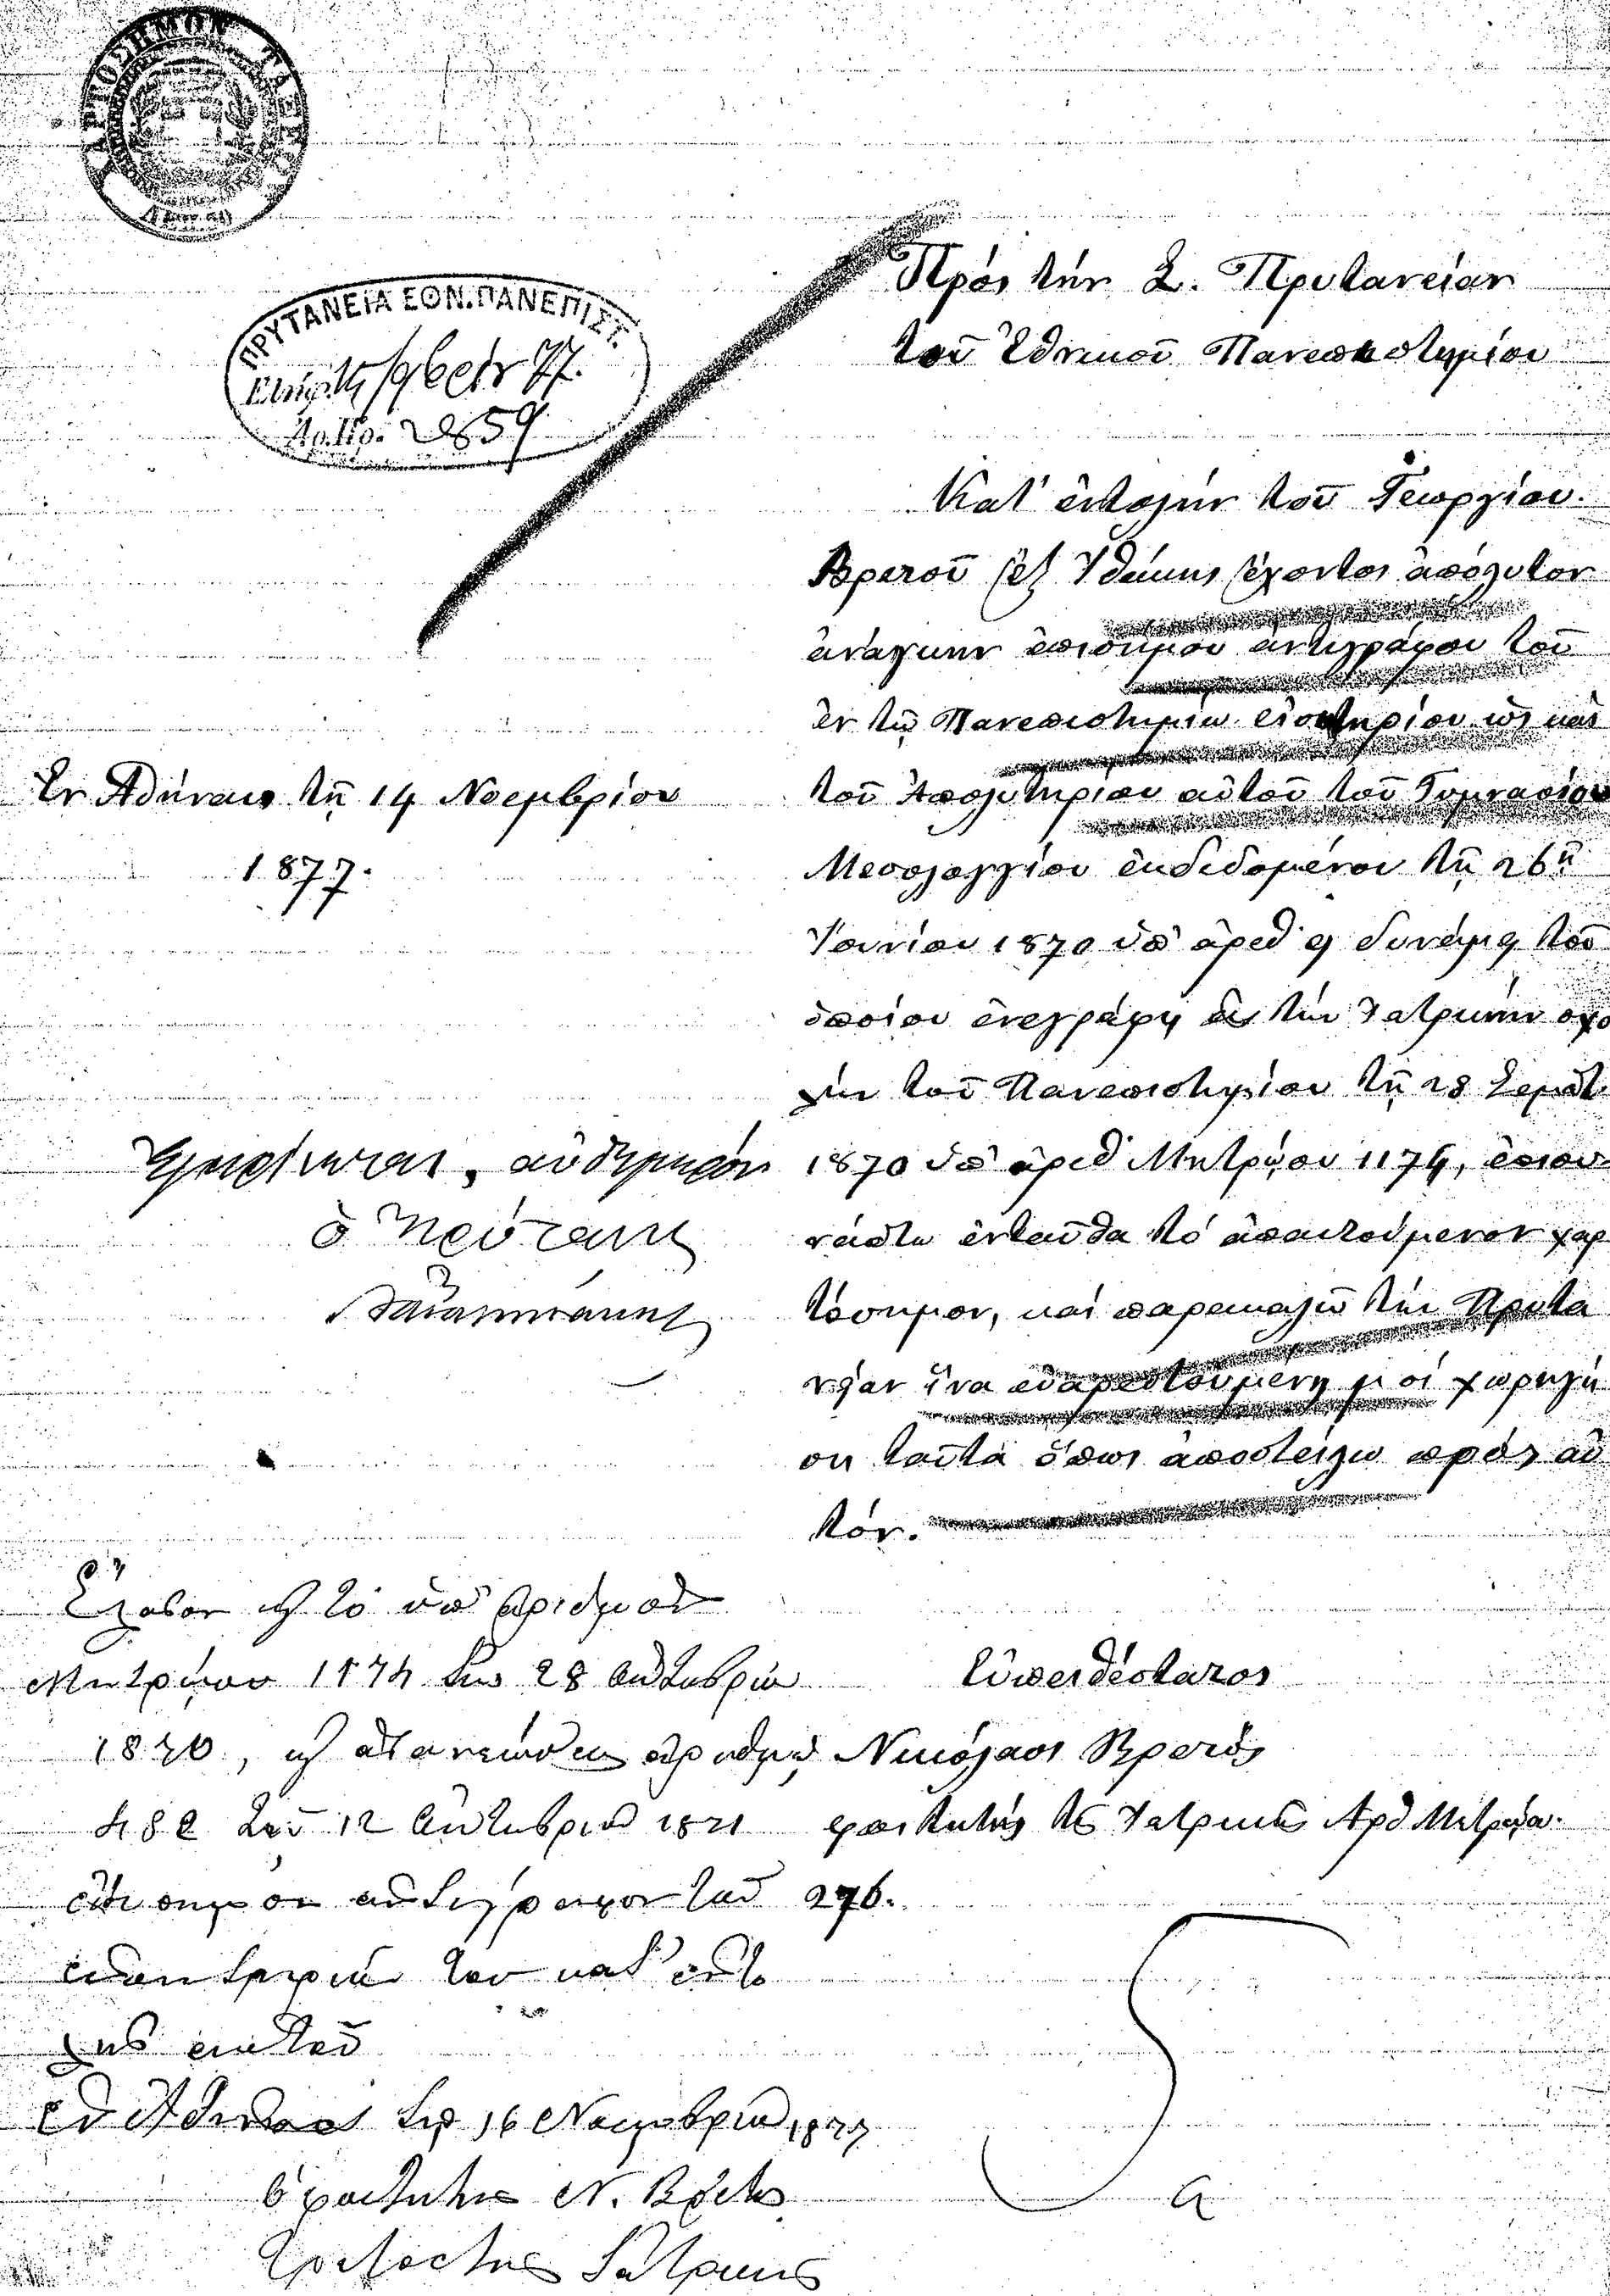 ΧΑΡΤΟΣΗΜΟΝ
ΠΡΥΤΑΝΕΙΑ ΕΘΝ. ΠΑΝΕΠΙΣΤ.
Αρ. Πρ. 2859
Πρὸς τὴν Σ. Πρυτανείαν
τοῦ Ἐθνικοῦ Πανεπιστημίου
Κατ' ἐντολὴν τοῦ Γεωργίου
Βρετοῦ (ἐξ Ἰθάκης) ἔχοντος ἀπόλυτον
ἀνάγκην ἐπισήμου ἀντιγράφου τοῦ
ἐν τῷ Πανεπιστημίῳ εἰσιτηρίου ὡς καὶ
τοῦ Ἀπολυτηρίου αὐτοῦ τοῦ Γυμνασίου
Μεσολογγίου ἐκδιδομένου τῇ 26ῃ
Ἰουνίου 1870 ὑπ' ἀριθ 9 δυνάμει τοῦ
ὁποίου ἐνεγράφη εἰς τὴν Ἰατρικὴν σχο
λὴν τοῦ Πανεπιστημίου τῇ 28
1870 ὑπ' ἀριθ Μητρῴου 1174, ἐπισυ
νάπτω ἐνταῦθα τὸ ἀπαιτούμενον χαρ
τόσημον, καὶ παρακαλῶ τὴν Πρυτα
νείαν ἵνα εὐαρεστουμένη μοὶ χωρηγή
ση ταῦτα ὅπως ἀποστείλω πρὸς αὐ
τόν.
Ἐν Ἀθήναις τῇ 14 Νοεμβρίου
1877.
αὐθημερόν
ὁ Πρύτανις
Εὐπειθέστατος
Νικόλαος Βρετός
φοιτητὴς τῆς Ἰατρικῆς Ἀρθ Μητρῴου
276.
Ἔλαβον τὸ ὑπ' ἀριθμὸν
Μητρῴου 1174 τῆς 28 Ὀκτωβρίου
1870, ἀριθμῷ
482 τῆς 12 Ὀκτωβρίου 1871
ἐπίσημον ἀντίγραφον τοῦ
εἰσιτηρίου του κατ' ἐντο
λὴν αὐτοῦ
Ἐν Ἀθήναις τῇ 16 Νοεμβρίου 1877
ὁ φοιτητὴς Ν. Βρετός
Ἰατρικῆς